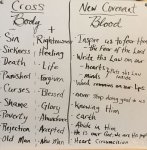 Cross
Body
Sin + Righteousness
Sickness + Healing
Death + Life
Punished + Forgiven
Curses + Blessed
Shame + Glory
Poverty + Abundance
Rejection + Accepted
Old Man + New Man
New Covenant
Blood
Inspire us to fear Him
the Fear of the Lord
Write the Law on our
hearts
minds
on our
never stop doing good to us
Knowing Him
earth
Abide in Him
He is our God we are His
Heart Circumcision